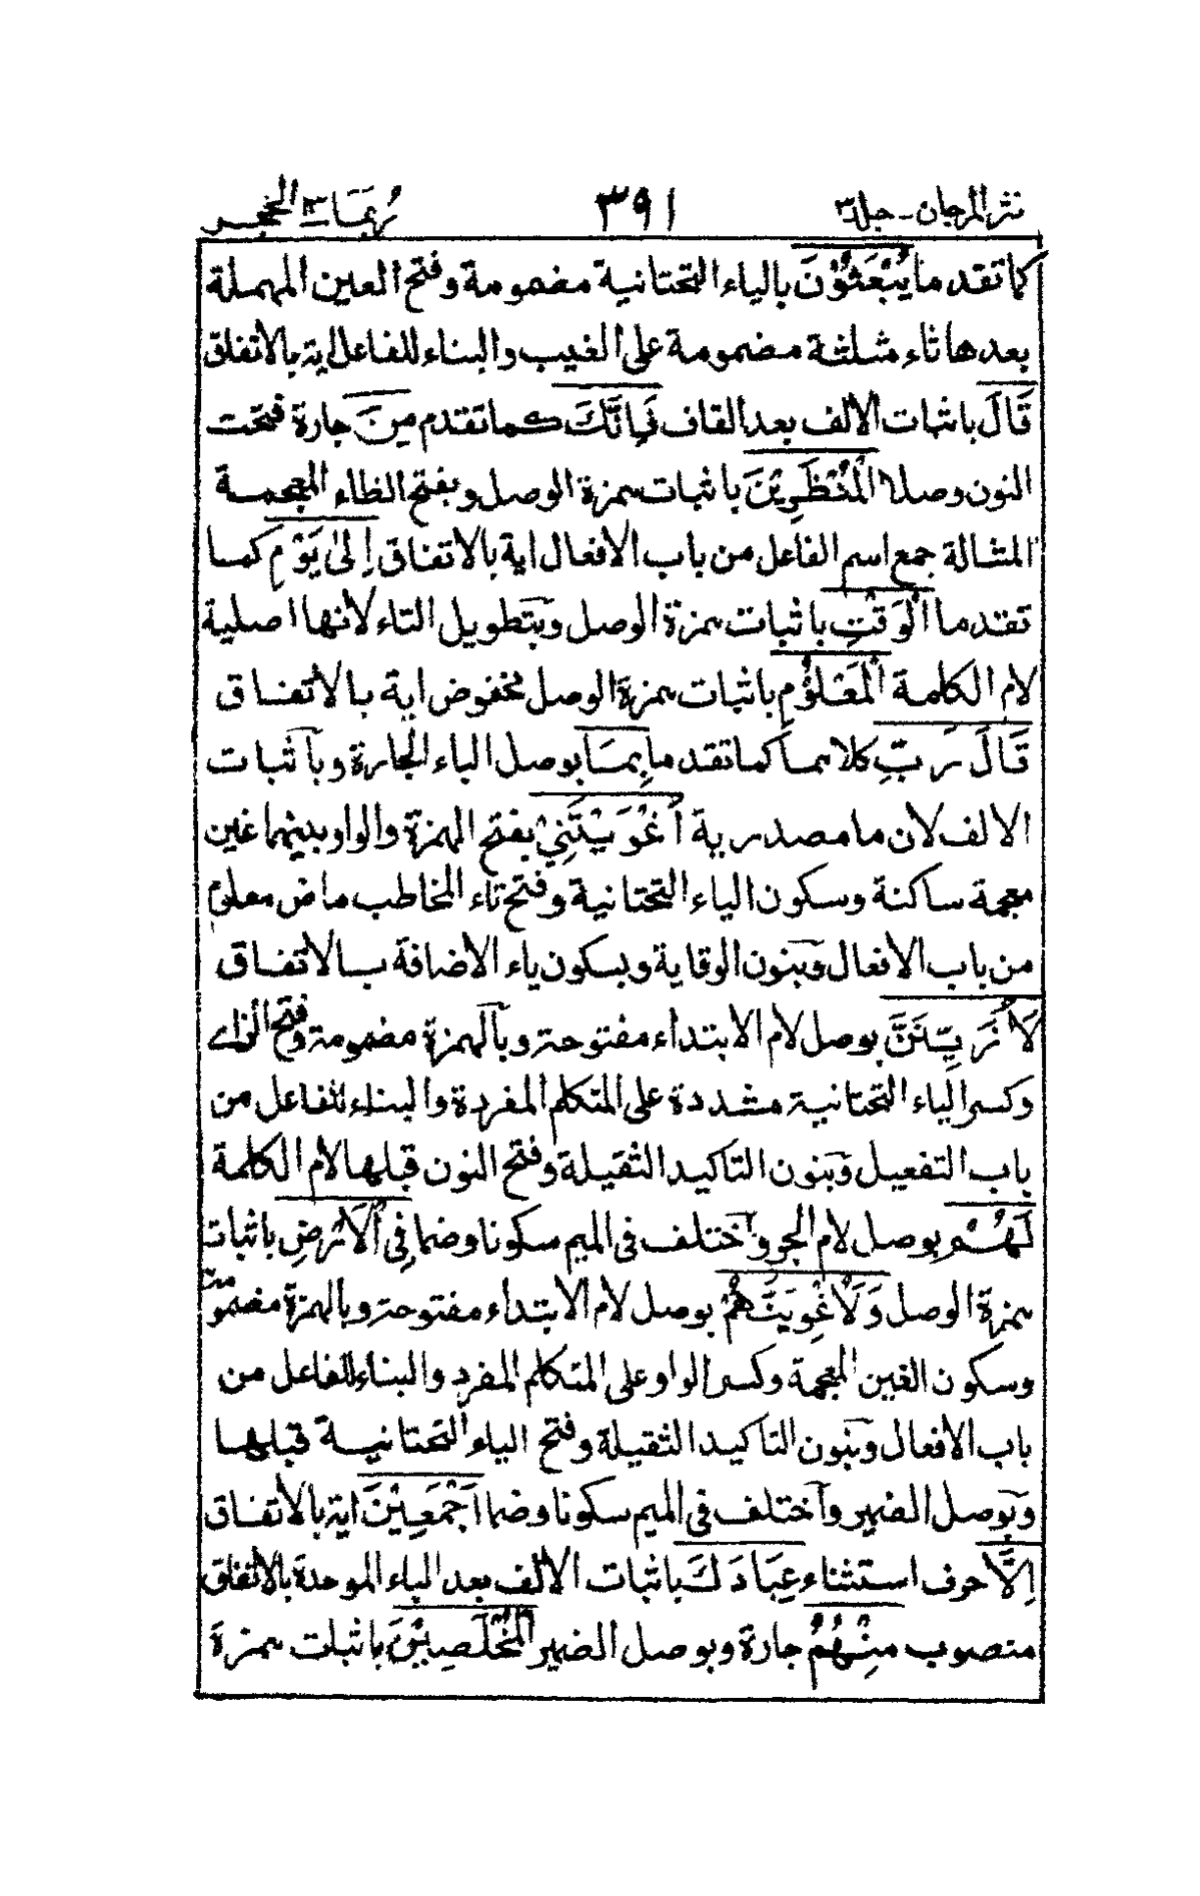 نثر المرجان - جلد ٣
٣٩١
ربما ١٤ الحجر
كما تقدم ما يُبْعَثُوْنَ بالياء التحتانية مضمومة وفتح العين المهملة
بعدها ثاء مثلثة مضمومة على الغيب والبناء للفاعل اية بالاتفاق
قَالَ باثبات الالف بعد القاف فَاِنَّكَ كما تقدم مِنَ جارة فتحت
النون وصلا الْمُنْظَرِيْنَ باثبات همزة الوصل وبفتح الظاء المعجمة
المشالة جمع اسم الفاعل من باب الافعال اية بالاتفاق اِلىٰ يَوْمِ كما
تقدما الْوَقْتِ باثبات همزة الوصل وبتطويل التاء لانها اصلية
لام الكلمة الْمَعْلُوْمِ باثبات همزة الوصل مخفوض اية بالاتفاق
قَالَ رَبِّ كلاهما كما تقدما بِمَا بوصل الباء الجارة وباثبات
الالف لان ما مصدرية اَغْوَيْتَنِيْ بفتح الهمزة والواو بينهما غين
معجمة ساكنة وسكون الياء التحتانية وفتح تاء المخاطب ماض معلوم
من باب الافعال وبنون الوقاية وبسكون ياء الاضافة بالاتفاق
لَاُزَيِّنَنَّ بوصل لام الابتداء مفتوحة وبالهمزة مضمومة وفتح الزاے
وكسر الياء التحتانية مشددة على المتكلم المفردة والبناء للفاعل من
باب التفعيل وبنون التاكيد الثقيلة وفتح النون قبلها لام الكلمة
لَهُمْ بوصل لام الجر واختلف فى الميم سكونا وضما فِي الْاَرْضِ باثبات
همزة الوصل وَلَاُغْوِيَنَّهُمْ بوصل لام الابتداء مفتوحة وبالهمزة مضمومة
وسكون الغين المعجمة وكسر الواو على المتكلم المفرد والبناء للفاعل من
باب الافعال وبنون التاكيد الثقيلة وفتح الياء التحتانية قبلها
وبوصل الضمير واختلف فى الميم سكونا وضما اَجْمَعِيْنَ اية بالاتفاق
اِلَّا حرف استثناء عِبَادَكَ باثبات الالف بعد الباء الموحدة بالاتفاق
منصوب مِنْهُمُ جارة وبوصل الضمير الْمُخْلَصِيْنَ باثبات همزة